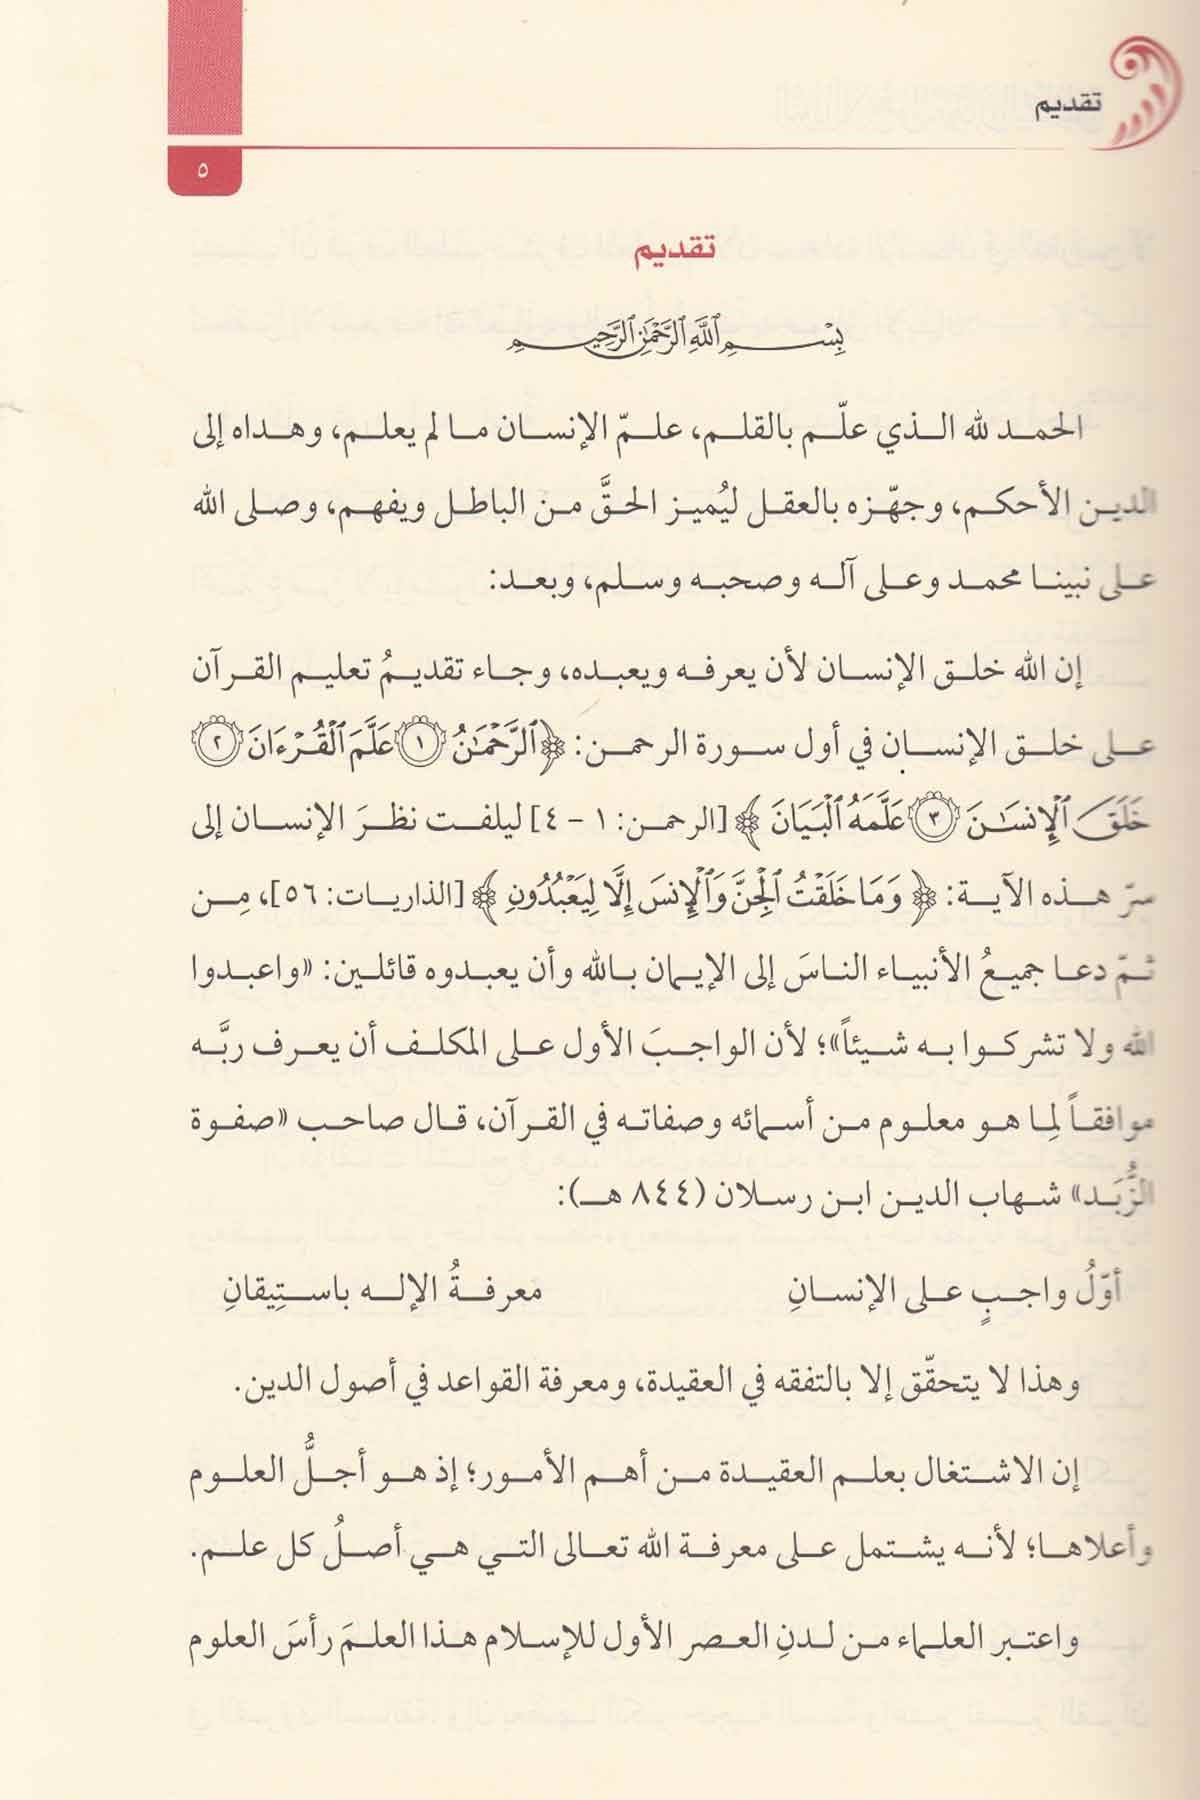 تقديم
٥
تقديم
بِسْمِ ٱللَّهِ ٱلرَّحْمَٰنِ ٱلرَّحِيمِ
الحمد لله الذي علّم بالقلم، علمّ الإنسان ما لم يعلم، وهداه إلى
الدين الأحكم، وجهّزه بالعقل ليُميز الحقَّ من الباطل ويفهم، وصلى الله
على نبينا محمد وعلى آله وصحبه وسلم، وبعد:
إن الله خلق الإنسان لأن يعرفه ويعبده، وجاء تقديمُ تعليم القرآن
على خلق الإنسان في أول سورة الرحمن: ﴿ٱلرَّحْمَٰنُ ١ عَلَّمَ ٱلْقُرْءَانَ ٢
خَلَقَ ٱلْإِنسَٰنَ ٣ عَلَّمَهُ ٱلْبَيَانَ﴾ [الرحمن: ١ - ٤] ليلفت نظرَ الإنسان إلى
سرّ هذه الآية: ﴿وَمَا خَلَقْتُ ٱلْجِنَّ وَٱلْإِنسَ إِلَّا لِيَعْبُدُونِ﴾ [الذاريات: ٥٦]، مِن
ثمّ دعا جميعُ الأنبياء الناسَ إلى الإيمان بالله وأن يعبدوه قائلين: «واعبدوا
الله ولا تشركوا به شيئاً»؛ لأن الواجبَ الأول على المكلف أن يعرف ربَّه
موافقاً لِما هو معلوم من أسمائه وصفاته في القرآن، قال صاحب «صفوة
الزُّبَد» شهاب الدين ابن رسلان (٨٤٤ هـ):
أوّلُ واجبٍ على الإنسانِ معرفةُ الإله باستِيقانِ
وهذا لا يتحقّق إلا بالتفقه في العقيدة، ومعرفة القواعد في أصول الدين.
إن الاشتغال بعلم العقيدة من أهم الأمور؛ إذ هو أجلُّ العلوم
وأعلاها؛ لأنه يشتمل على معرفة الله تعالى التي هي أصلُ كل علم.
واعتبر العلماء من لدنِ العصر الأول للإسلام هذا العلمَ رأسَ العلوم